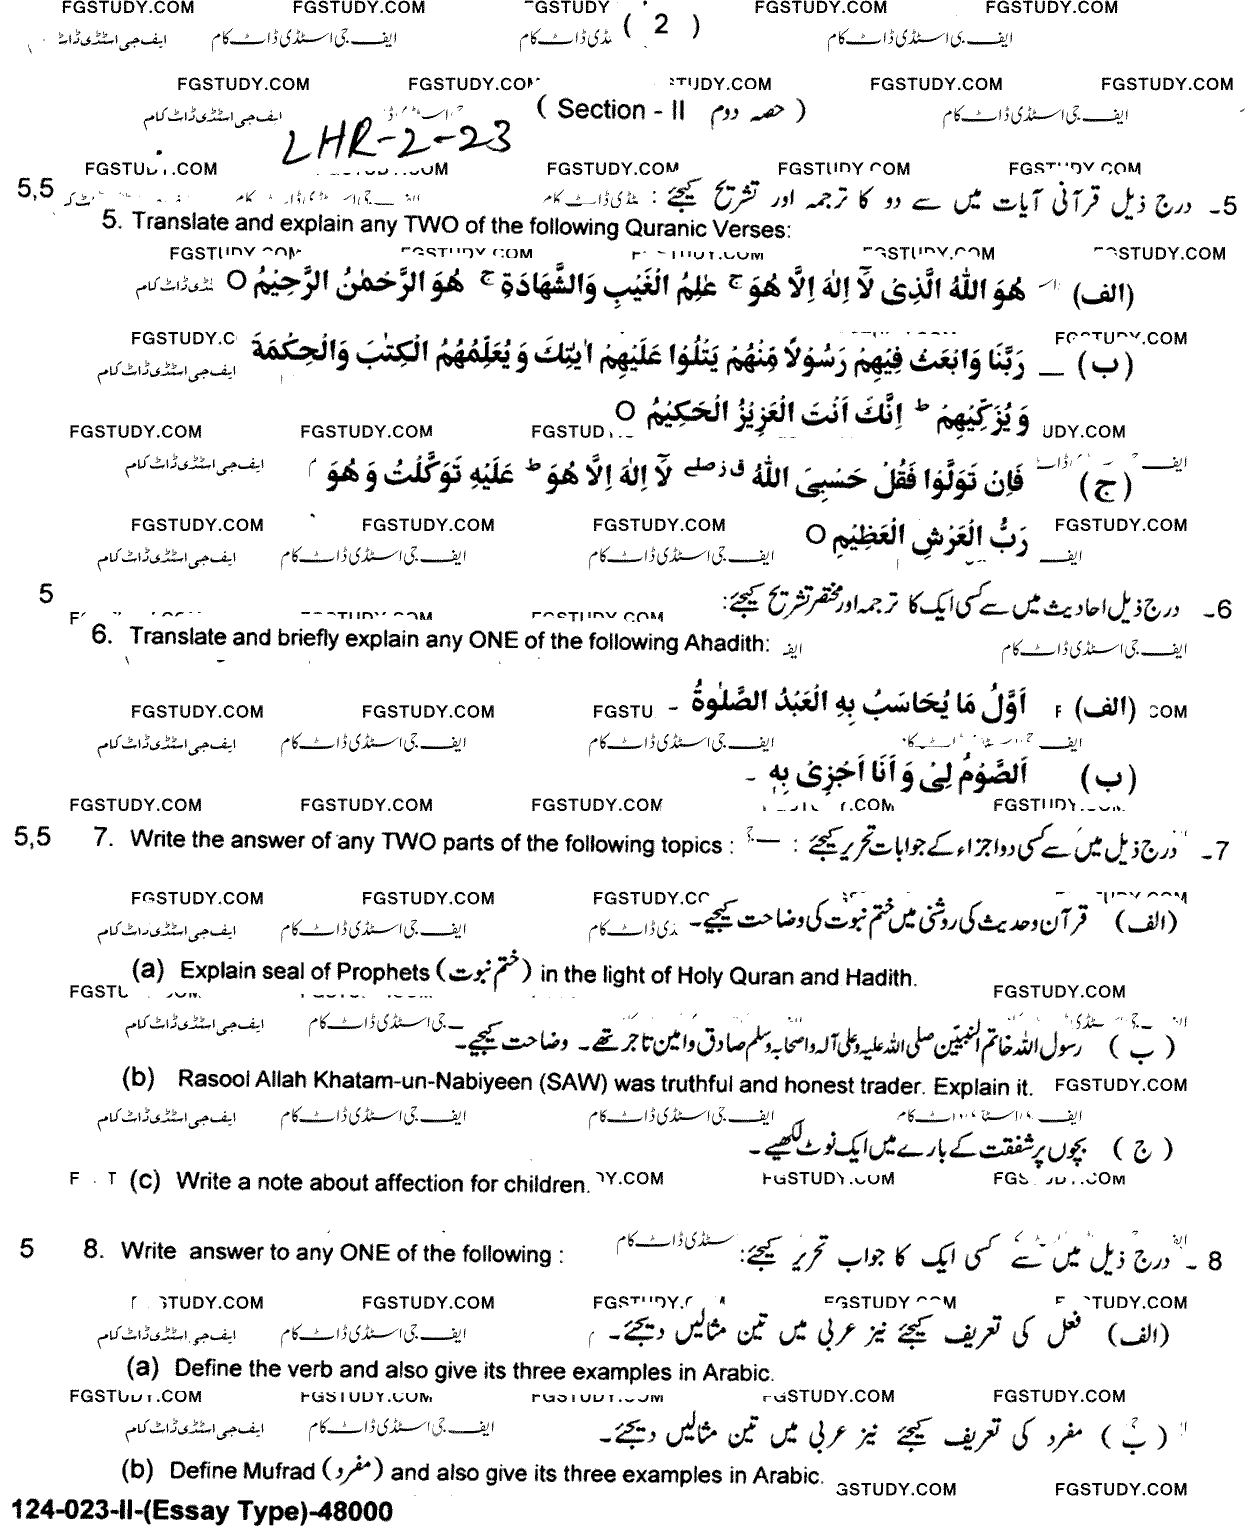 FGSTUDY.COM FGSTUDY.COM FGSTUDY FGSTUDY.COM FGSTUDY.COM
( 2 )
ایف جی اسٹڈی ڈاٹ کام
FGSTUDY.COM FGSTUDY.COM FGSTUDY.COM FGSTUDY.COM
( Section - II حصہ دوم )
LHR-2-23
5,5 5۔ درج ذیل قرآنی آیات میں سے دو کا ترجمہ اور تشریح کیجئے :
5. Translate and explain any TWO of the following Quranic Verses:
(الف) هُوَ اللّٰهُ الَّذِىْ لَآ اِلٰهَ اِلَّا هُوَ ۚ عٰلِمُ الْغَيْبِ وَالشَّهَادَةِ ۚ هُوَ الرَّحْمٰنُ الرَّحِيْمُ O
(ب) رَبَّنَا وَابْعَثْ فِيْهِمْ رَسُوْلًا مِّنْهُمْ يَتْلُوْا عَلَيْهِمْ اٰيٰتِكَ وَيُعَلِّمُهُمُ الْكِتٰبَ وَالْحِكْمَةَ
وَيُزَكِّيْهِمْ ؕ اِنَّكَ اَنْتَ الْعَزِيْزُ الْحَكِيْمُ O
(ج) فَاِنْ تَوَلَّوْا فَقُلْ حَسْبِىَ اللّٰهُ ق ز صلے لَآ اِلٰهَ اِلَّا هُوَ ؕ عَلَيْهِ تَوَكَّلْتُ وَهُوَ
رَبُّ الْعَرْشِ الْعَظِيْمِ O
5 6۔ درج ذیل احادیث میں سے کسی ایک کا ترجمہ اور مختصر تشریح کیجئے:
6. Translate and briefly explain any ONE of the following Ahadith:
(الف) اَوَّلُ مَا يُحَاسَبُ بِهِ الْعَبْدُ الصَّلٰوةُ -
(ب) اَلصَّوْمُ لِىْ وَاَنَا اَجْزِىْ بِهٖ -
5,5 7۔ درج ذیل میں سے کسی دو اجزاء کے جوابات تحریر کیجئے :
7. Write the answer of any TWO parts of the following topics :
(الف) قرآن و حدیث کی روشنی میں ختم نبوت کی وضاحت کیجیے۔
(a) Explain seal of Prophets (ختم نبوت) in the light of Holy Quran and Hadith.
(ب) رسول اللہ خاتم النبیین صلی اللہ علیہ وعلی آلہ واصحابہ وسلم صادق و امین تاجر تھے۔ وضاحت کیجیے۔
(b) Rasool Allah Khatam-un-Nabiyeen (SAW) was truthful and honest trader. Explain it.
(ج) بچوں پر شفقت کے بارے میں ایک نوٹ لکھیے۔
(c) Write a note about affection for children.
5 8۔ درج ذیل میں سے کسی ایک کا جواب تحریر کیجئے:
8. Write answer to any ONE of the following :
(الف) فعل کی تعریف کیجئے نیز عربی میں تین مثالیں دیجئے۔
(a) Define the verb and also give its three examples in Arabic.
(ب) مفرد کی تعریف کیجئے نیز عربی میں تین مثالیں دیجئے۔
(b) Define Mufrad (مفرد) and also give its three examples in Arabic.
124-023-II-(Essay Type)-48000